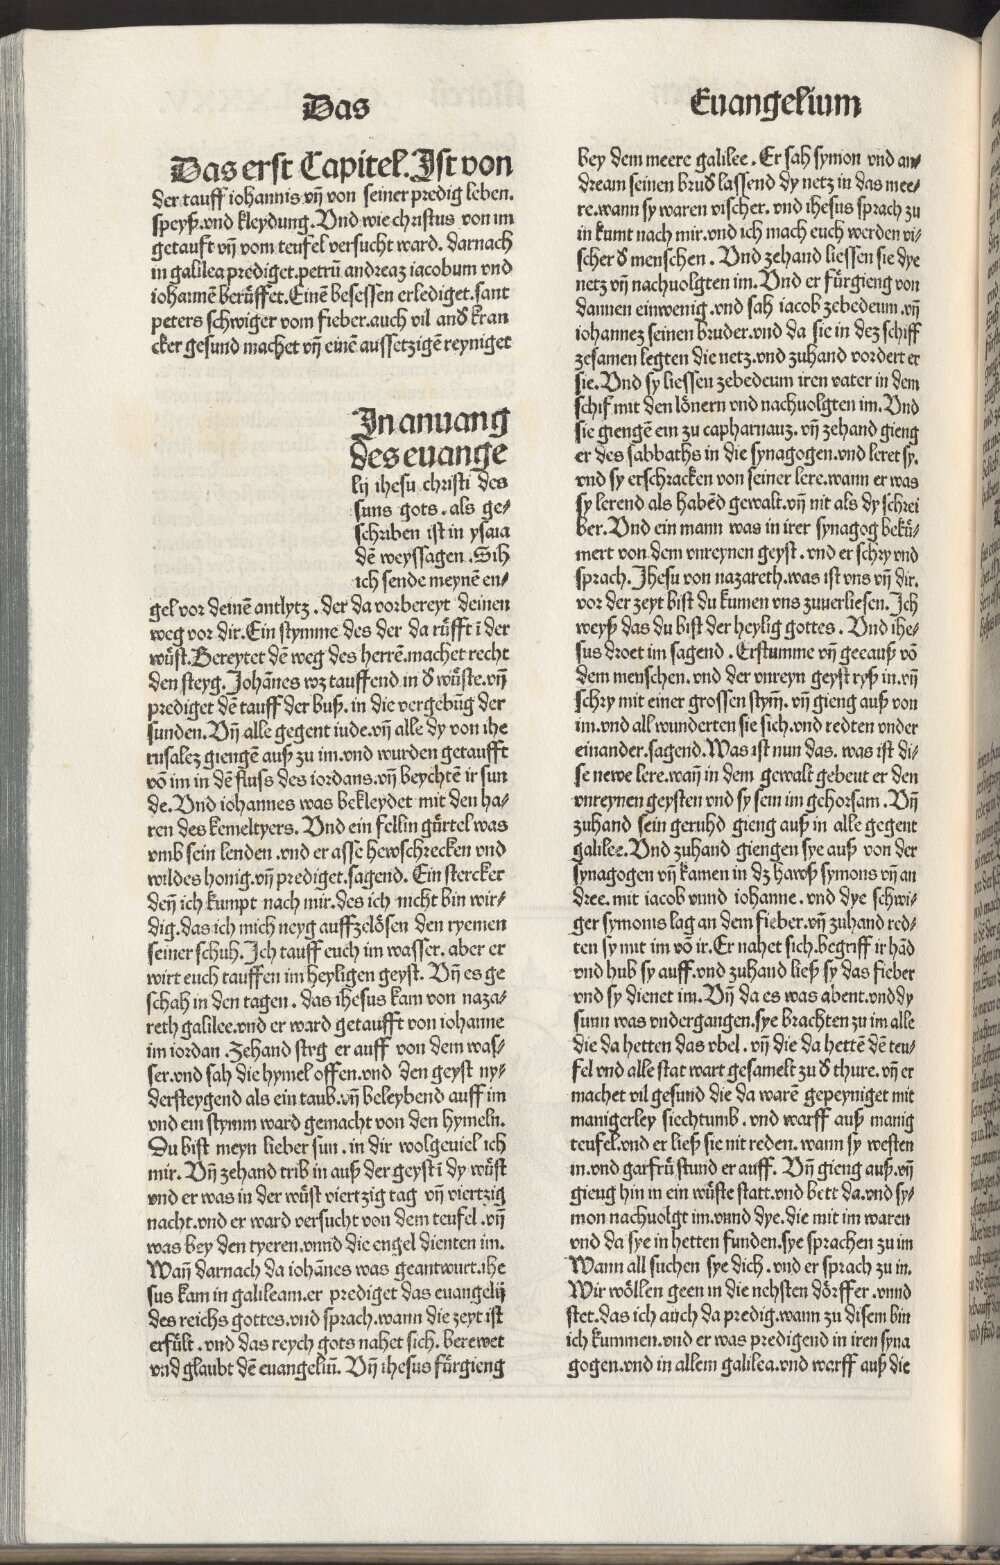 Das
Euangelium
Das erst Capitel. Ist von
der tauff iohannis vñ von seiner predig leben.
speyß.vnd kleydung. Vnd wie christus von im
getauft vñ vom teufel versucht ward. darnach
in galilea prediget.petrū andreaz iacobum vnd
iohannē berüffet. Einē besessen erlediget.sant
peters schwiger vom fieber.auch vil and̄ kran
cker gesund machet vñ einē aussetzigē reyniget
In anuang
des euange
lij ihesu christi des
suns gots . als ge⸗
schriben ist in ysaia
dē weyssagen . Sih
ich sende meynē en⸗
gel vor deinē antlytz . der da vorbereyt deinen
weg vor dir. Ein stymme des der da rüfft ī der
wüst. Bereytet dē weg des herrē.machet recht
den steyg. Johānes wz tauffend in d̄ wüste.vñ
prediget dē tauff der buß. in die vergebūg der
sunden. Vñ alle gegent iude.vñ alle dy von ihe
rusalez giengē auß zu im.vnd wurden getaufft
vō im in dē fluss des iordans.vñ beychtē ir sun
de. Vnd iohannes was bekleydet mit den ha⸗
ren des kemeltyers. Vnd ein fellin gürtel was
vmb sein lenden .vnd er asse hewschrecken vnd
wildes honig.vñ prediget.sagend. Ein stercker
deñ ich kumpt nach mir.des ich nicht bin wir⸗
dig.das ich mich neyg auffzelösen den ryemen
seiner schuh. Ich tauff euch im wasser. aber er
wirt euch tauffen im heyligen geyst. Vñ es ge
schah in den tagen . das ihesus kam von naza⸗
reth galilee.vnd er ward getaufft von iohanne
im iordan . Zehand styg er auff von dem was⸗
ser.vnd sah die hymel offen.vnd den geyst ny⸗
dersteygend als ein taub.vñ beleybend auff im
vnd ein stymm ward gemacht von den hymeln.
Du bist meyn lieber sun . in dir wolgeuiel ich
mir. Vñ zehand trib in auß der geyst ī dy wüst
vnd er was in der wüst viertzig tag vñ viertzig
nacht.vnd er ward versucht von dem teufel .vñ
was bey den tyeren.vnnd die engel dienten im.
Wañ darnach da iohānes was geantwurt.ihe
sus kam in galileam.er prediget das euangelij
des reichs gottes.vnd sprach.wann die zeyt ist
erfült . vnd das reych gots nahet sich. berewet
vnd glaubt dē euangeliū. Vñ ihesus fürgieng
bey dem meere galilee . Er sah symon vnd an⸗
dream seinen brud̄ lassend dy netz in das mee⸗
re.wann sy waren vischer. vnd ihesus sprach zu
in kumt nach mir.vnd ich mach euch werden vi⸗
scher d̄ menschen . Vnd zehand liessen sie dye
netz vñ nachuolgten im. Vnd er fürgieng von
dannen einwenig .vnd sah iacob zebedeum .vñ
iohannez seinen bruder.vnd da sie in dez schiff
zesamen legten die netz.vnd zuhand vordert er
sie. Vnd sy liessen zebedeum iren vater in dem
schif mit den lönern vnd nachuolgten im. Vnd
sie giengē ein zu capharnauz. vñ zehand gieng
er des sabbaths in die synagogen.vnd leret sy.
vnd sy erschracken von seiner lere.wann er was
sy lerend als habēd gewalt.vñ nit als dy schrei
ber. Vnd ein mann was in irer synagog bekü⸗
mert von dem vnreynen geyst . vnd er schry vnd
sprach. Ihesu von nazareth.was ist vns vñ dir.
vor der zeyt bist du kumen vns zuuerliesen. Ich
weyß das du bist der heylig gottes . Vnd ihe⸗
sus droet im sagend . Erstumme vñ geeauß vō
dem menschen. vnd der vnreyn geyst ryß in.vñ
schry mit einer grossen stym̄. vñ gieng auß von
im.vnd all wunderten sie sich.vnd redten vnder
einander.sagend. Was ist nun das. was ist di⸗
se newe lere.wañ in dem gewalt gebeut er den
vnreynen geysten vnd sy sein im gehorsam . Vñ
zuhand sein geruhd gieng auß in alle gegent
galilee. Vnd zuhand giengen sye auß von der
synagogen vñ kamen in dz hawß symons vñ an
dree. mit iacob vnnd iohanne. vnd dye schwi⸗
ger symonis lag an dem fieber.vñ zuhand red⸗
ten sy mit im vō ir. Er nahet sich.begriff ir hād
vnd hub sy auff.vnd zuhand ließ sy das fieber
vnd sy dienet im. Vñ da es was abent.vnd dy
sunn was vndergangen.sye brachten zu im alle
die da hetten das vbel . vñ die da hettē dē teu⸗
fel vnd alle stat wart gesamelt zu d̄ thure. vñ er
machet vil gesund die da warē gepeyniget mit
manigerley siechtumb . vnd warff auß manig
teufel.vnd er ließ sie nit reden. wann sy westen
in.vnd gar frü stund er auff. Vñ gieng auß.vñ
gieug hin in ein wüste statt.vnd bett da.vnd sy⸗
mon nachuolgt im.vnnd dye.die mit im waren
vnd da sye in hetten funden.sye sprachen zu im
Wann all suchen sye dich . vnd er sprach zu in.
Wir wöllen geen in die nehsten dörffer .vnnd
stet.das ich auch da predig.wann zu disem bin
ich kummen.vnd er was predigend in iren syna
gogen.vnd in allem galilea.vnd warff auß die